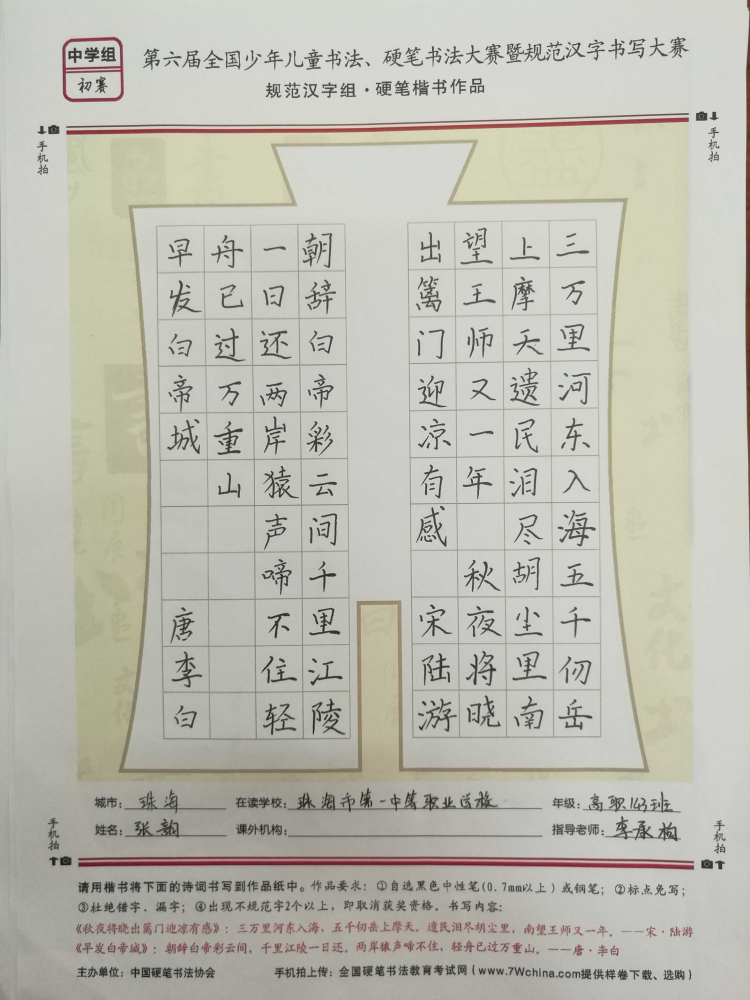 中学组
初赛
第六届全国少年儿童书法、硬笔书法大赛暨规范汉字书写大赛
规范汉字组·硬笔楷书作品
手机拍
手机拍
三万里河东入海五千仞岳
上摩天遗民泪尽胡尘里南
望王师又一年 秋夜将晓
出篱门迎凉有感 宋陆游
朝辞白帝彩云间千里江陵
一日还两岸猿声啼不住轻
舟已过万重山
早发白帝城 唐李白
城市：珠海 在读学校：珠海市第一中等职业学校 年级：高职143班
姓名：张韵 课外机构： 指导老师：
手机拍
手机拍
请用楷书将下面的诗词书写到作品纸中。作品要求：①自选黑色中性笔(0.7mm以上)或钢笔；②标点免写；
③杜绝错字、漏字；④出现不规范字2个以上，即取消获奖资格。书写内容：
《秋夜将晓出篱门迎凉有感》：三万里河东入海，五千仞岳上摩天，遗民泪尽胡尘里，南望王师又一年。——宋·陆游
《早发白帝城》：朝辞白帝彩云间，千里江陵一日还，两岸猿声啼不住，轻舟已过万重山。——唐·李白
主办单位：中国硬笔书法协会 手机拍上传：全国硬笔书法教育考试网(www.7Wchina.com提供样卷下载、选购)